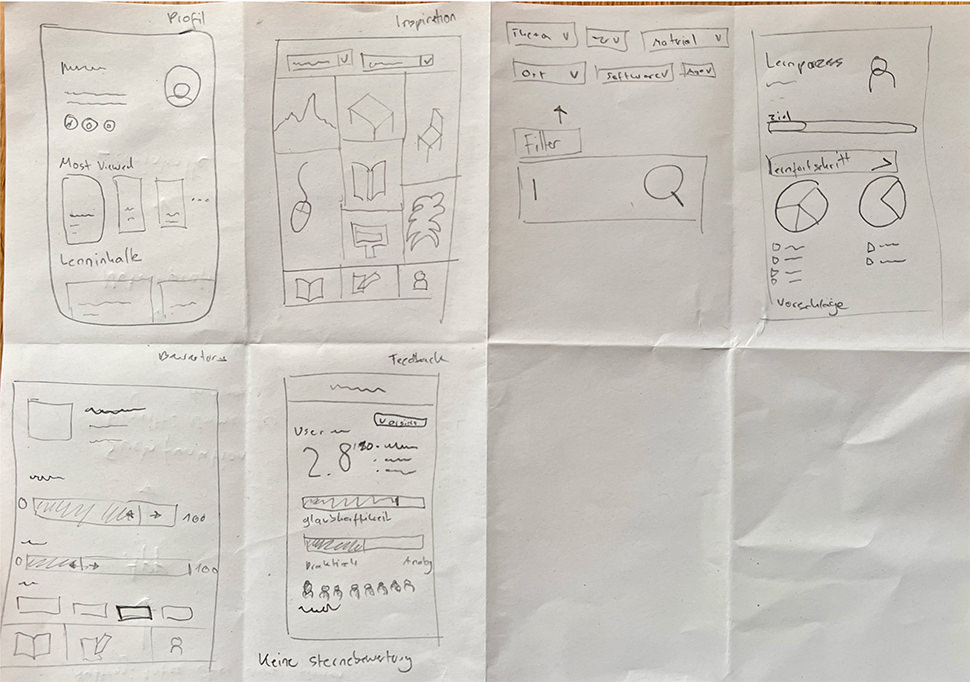 Profil
Most Viewed
Lerninhalte
Inspiration
Thema
Material
Ort
Software
Filter
Lernprozess
Ziel
Lernfortschritt
Vorschläge
0 100
0 100
Feedback
User
2.8
glaubhaftikeit
Praktisch
Keine Sternebewertung